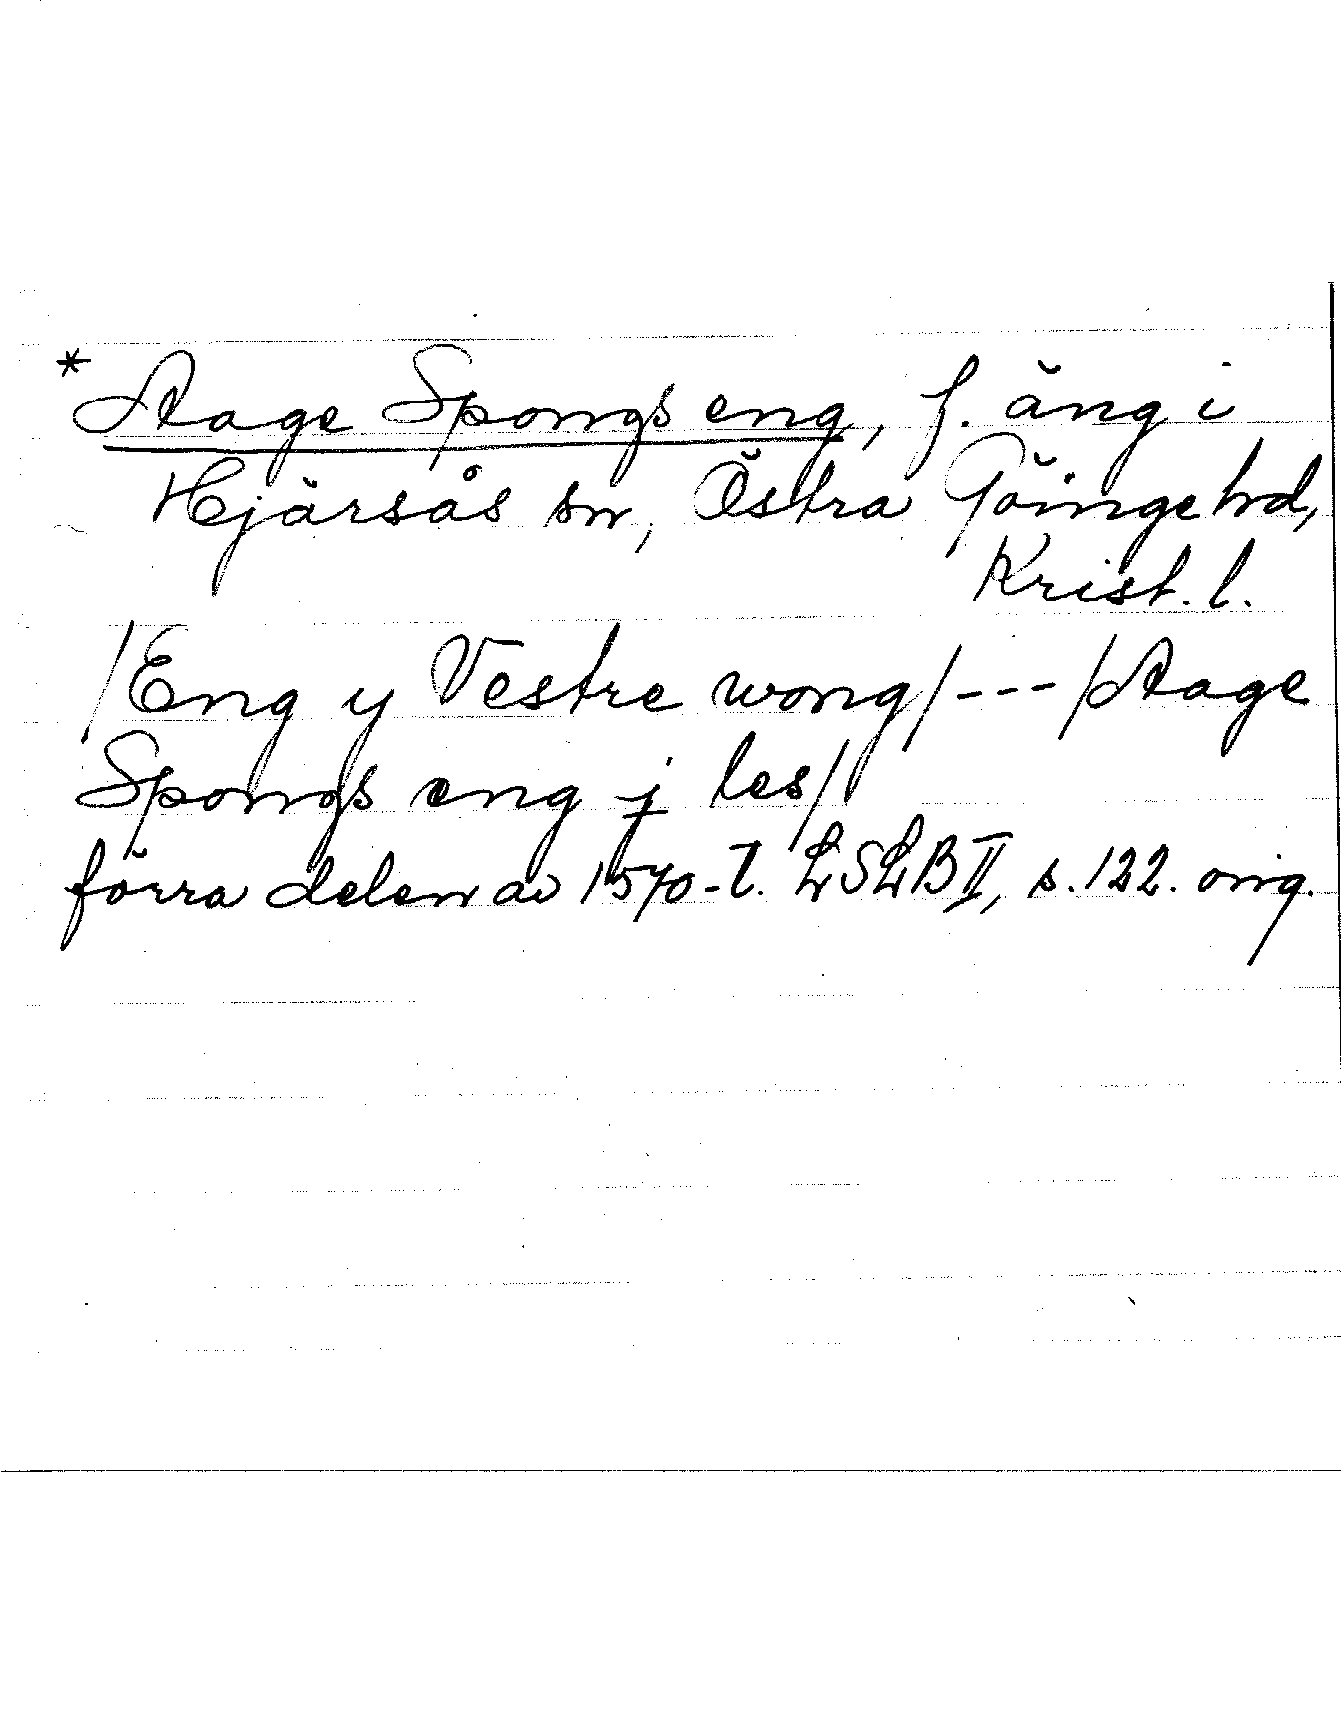 * Aage Spongs eng, f. äng i
Hjärsås sn, Östra Göinge hd,
Krist. l.
/Eng y Vestre wong/ --- /Aage
Spongs eng j les/
förra delen av 1570-t. LSLB II, s. 122. orig.